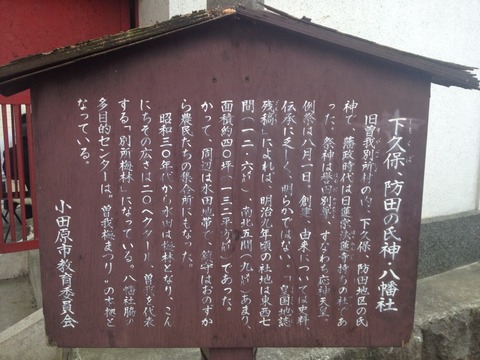 下久保、防田の氏神・八幡社
旧曽我別所村の内、下久保、防田地区の氏
神で、藩政時代は日蓮宗法蓮寺持ちの社であ
った。祭神は誉田別尊、すなわち応神天皇。
例祭は八月一日。創建、由来については史料、
伝承に乏しく、明らかではない。「皇国地誌
残稿」によれば、明治九年頃の社地は東西七
間(一二・六㍍)、南北五間(九㍍)あまり、
面積約四〇坪(一三二平方㍍)であった。
かつて、周辺は水田地帯で、鎮守はおのずか
ら農民たちの集合所にもなった。
昭和三〇年代から水田は梅林となり、こん
にちその広さは二〇ヘクタール。曽我を代表
する「別所梅林」になっている。八幡社脇の
多目的センターは“曽我梅まつり”の本拠と
なっている。
小田原市教育委員会